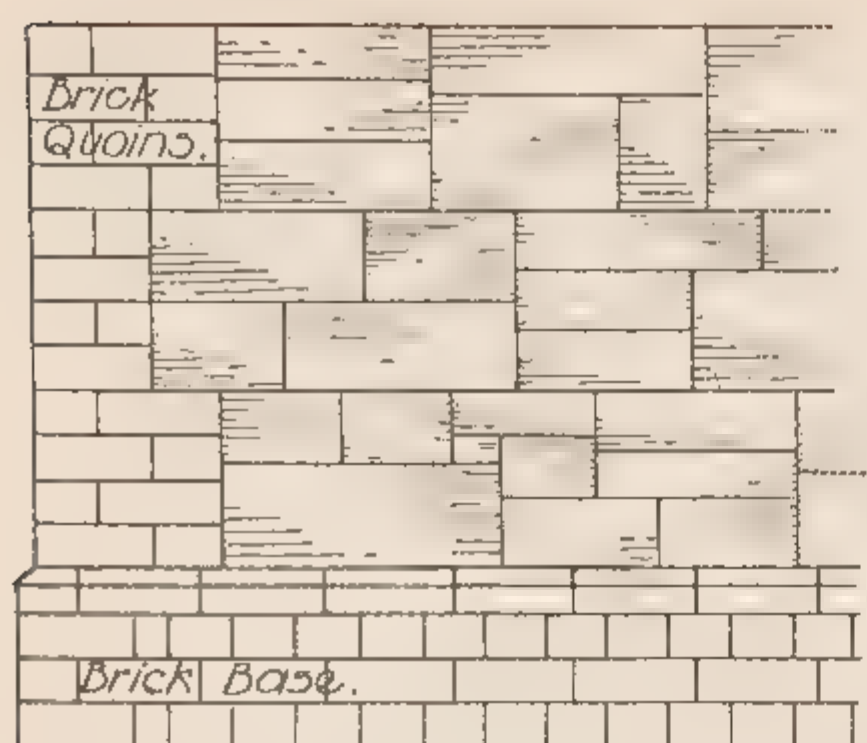 Brick
Quoins.
Brick Base.